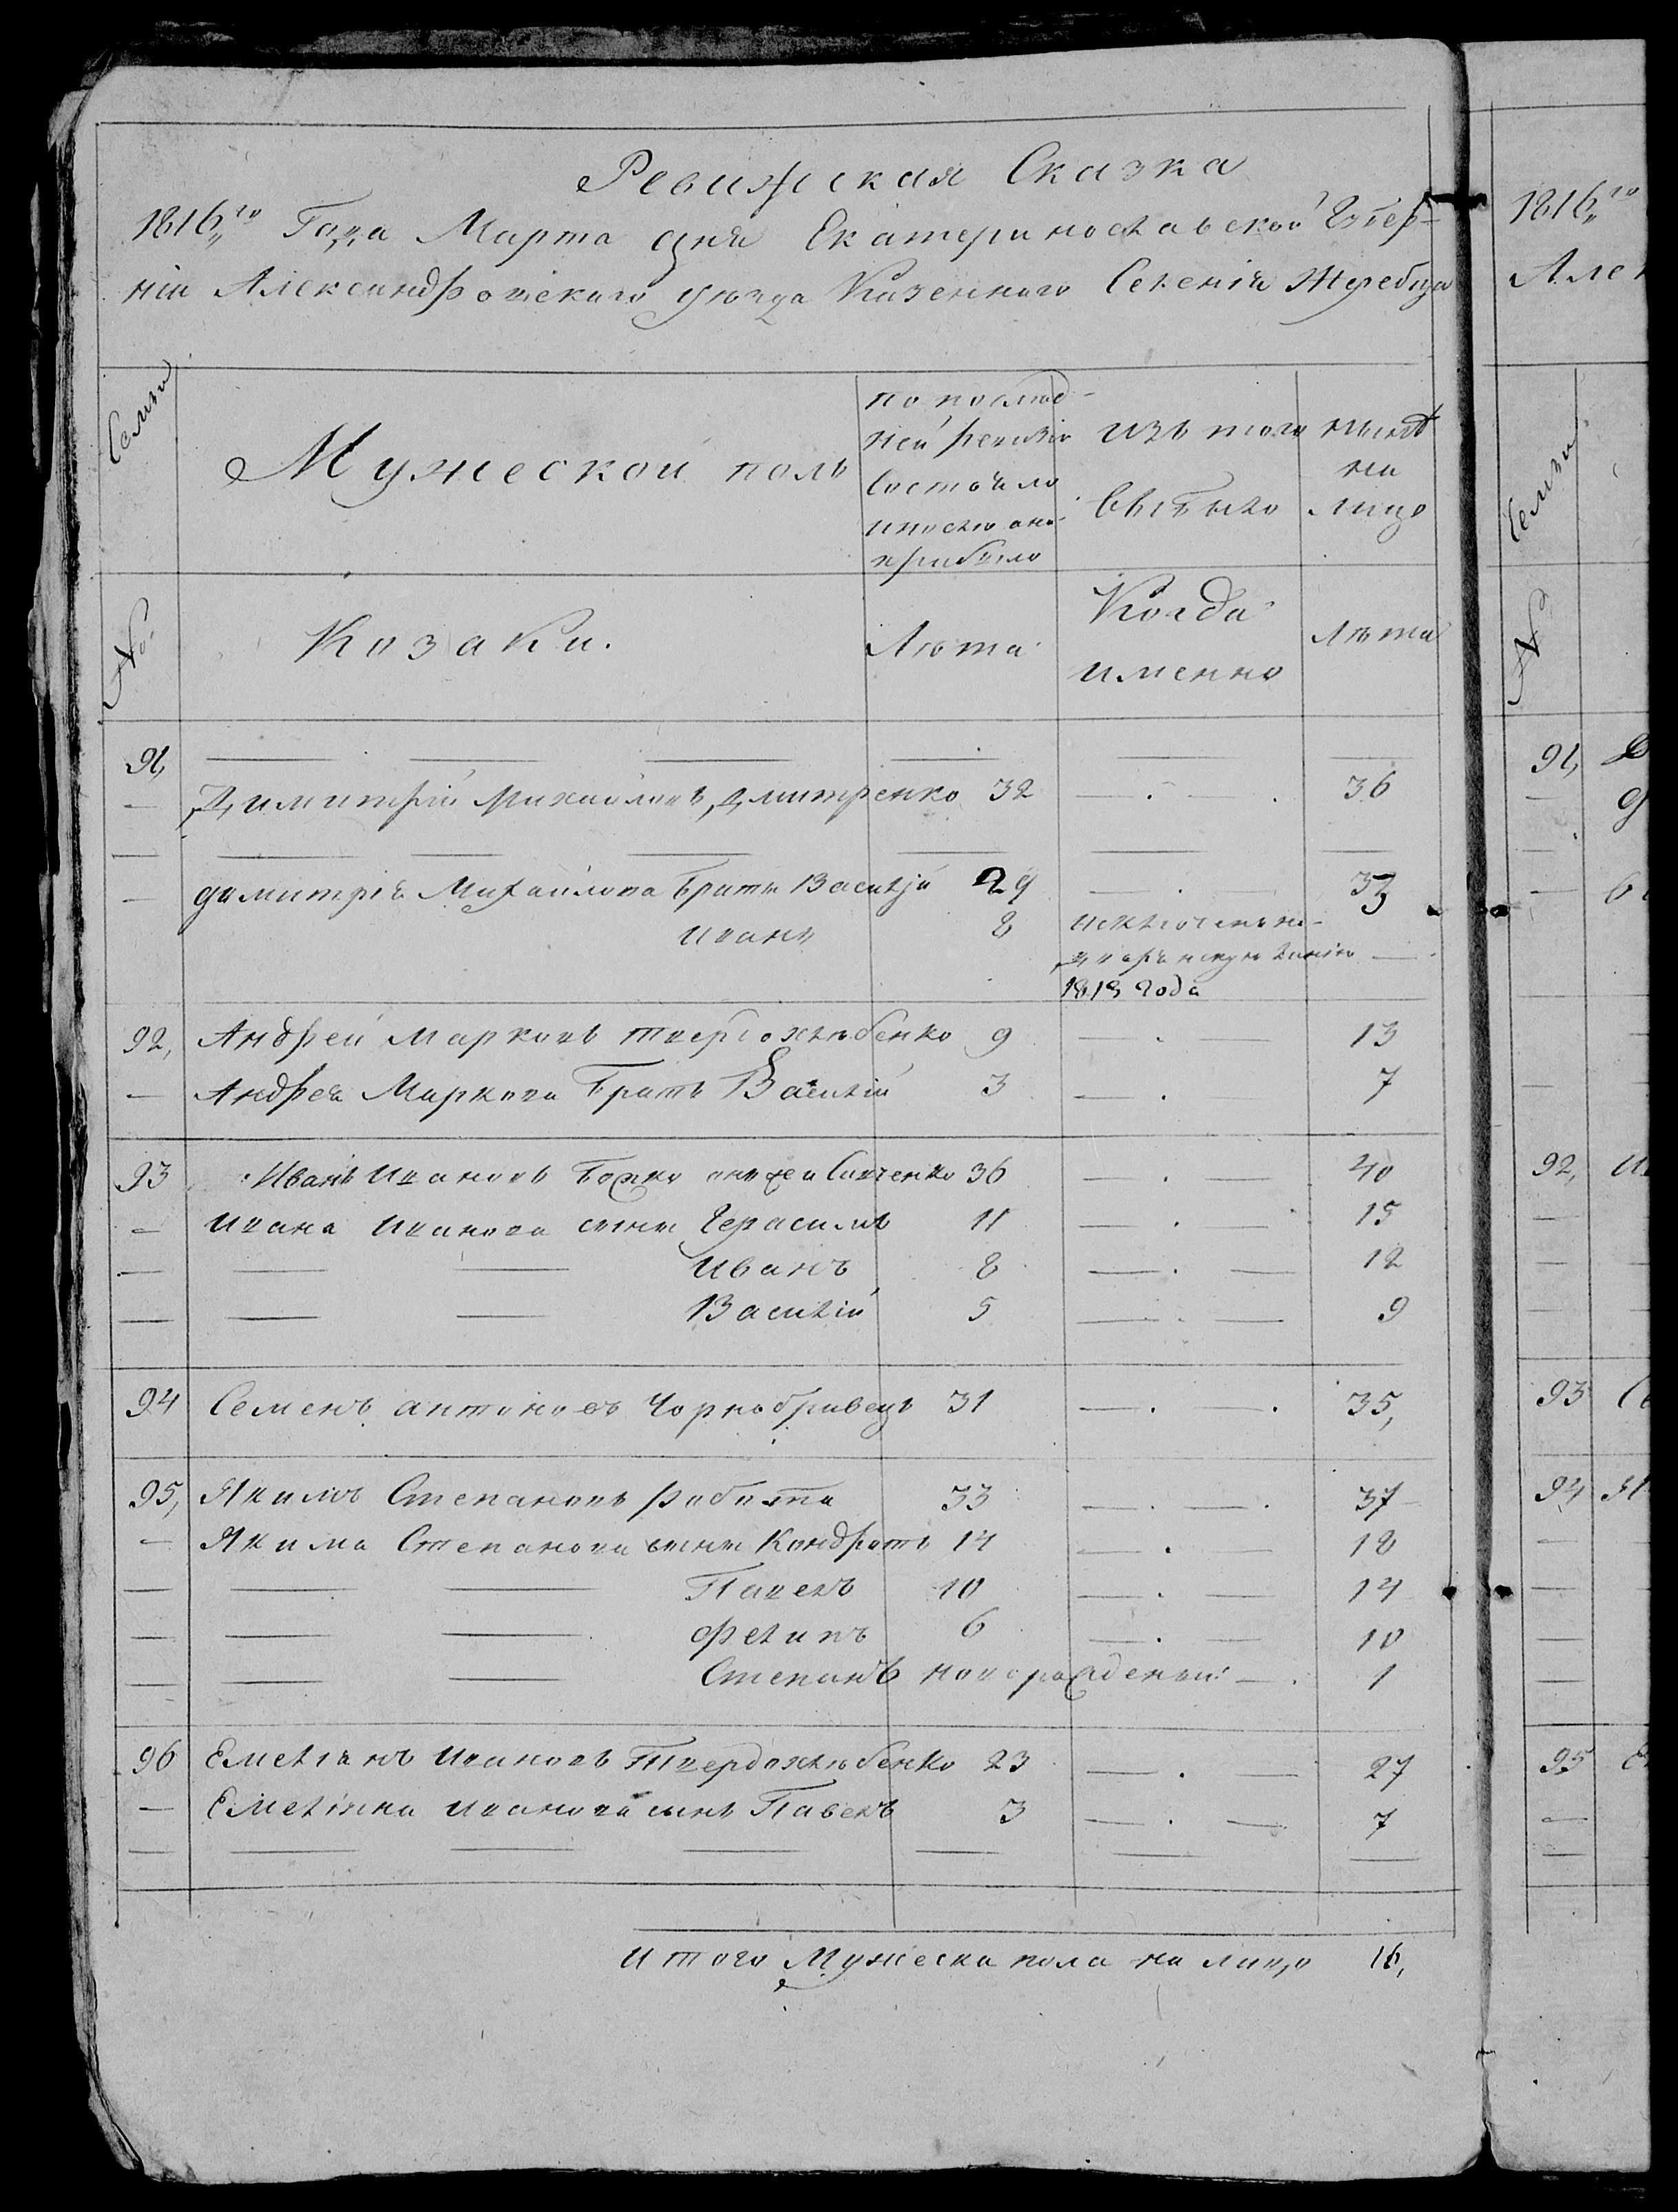 Ревижская Сказка
1816го Года Марта дня Екатеринославской Губер-
ніи Александровскаго уѣзда Казеннаго Селенія Жеребца
Семьи
Мужеской полъ
по послѣд-
ней ревизіи
состояло
и после оной
прибыло
изъ того
выбыло
нынѣ
на
лицо
№
Козаки.
Лѣта
Когда
именно
Лѣта
91,
— Димитрій Михайловъ Дмитренко 32 — . — . 36
— Димитрія Михайлова братъ Василій 29 — . 33
Иванъ 8 исключенъ
линію —
1813 года
92, Андрей Марковъ Твердохлѣбенко 9 — . — 13
— Андрея Маркова братъ Василій 3 — . 7
93 Иванъ Ивановъ Божко онъ же и Савченко 36 — . — 40
— Ивана Иванова сыны Герасимъ 11 — . — 15
— — — Иванъ 8 — . — 12
— — — Василій 5 — . — 9
94 Семенъ Антоновъ Чорнобривецъ 31 — . — . 35,
95, Якимъ Степановъ Робота 33 — . — . 37
— Якима Степанова сыны Кондратъ 14 — . — 18
— — — Павелъ 10 — . — 14
— — — Филипъ 6 — . — 10
— — — Степанъ новорожденый — . 1
96 Емеліанъ Ивановъ Твердохлѣбенко 23 — . — 27
— Емеліана Иванова сынъ Павелъ 3 — . — 7
Итого Мужеска пола на лицо 16,
1816го
Але
Семьи
№
91,
92,
93
94
95